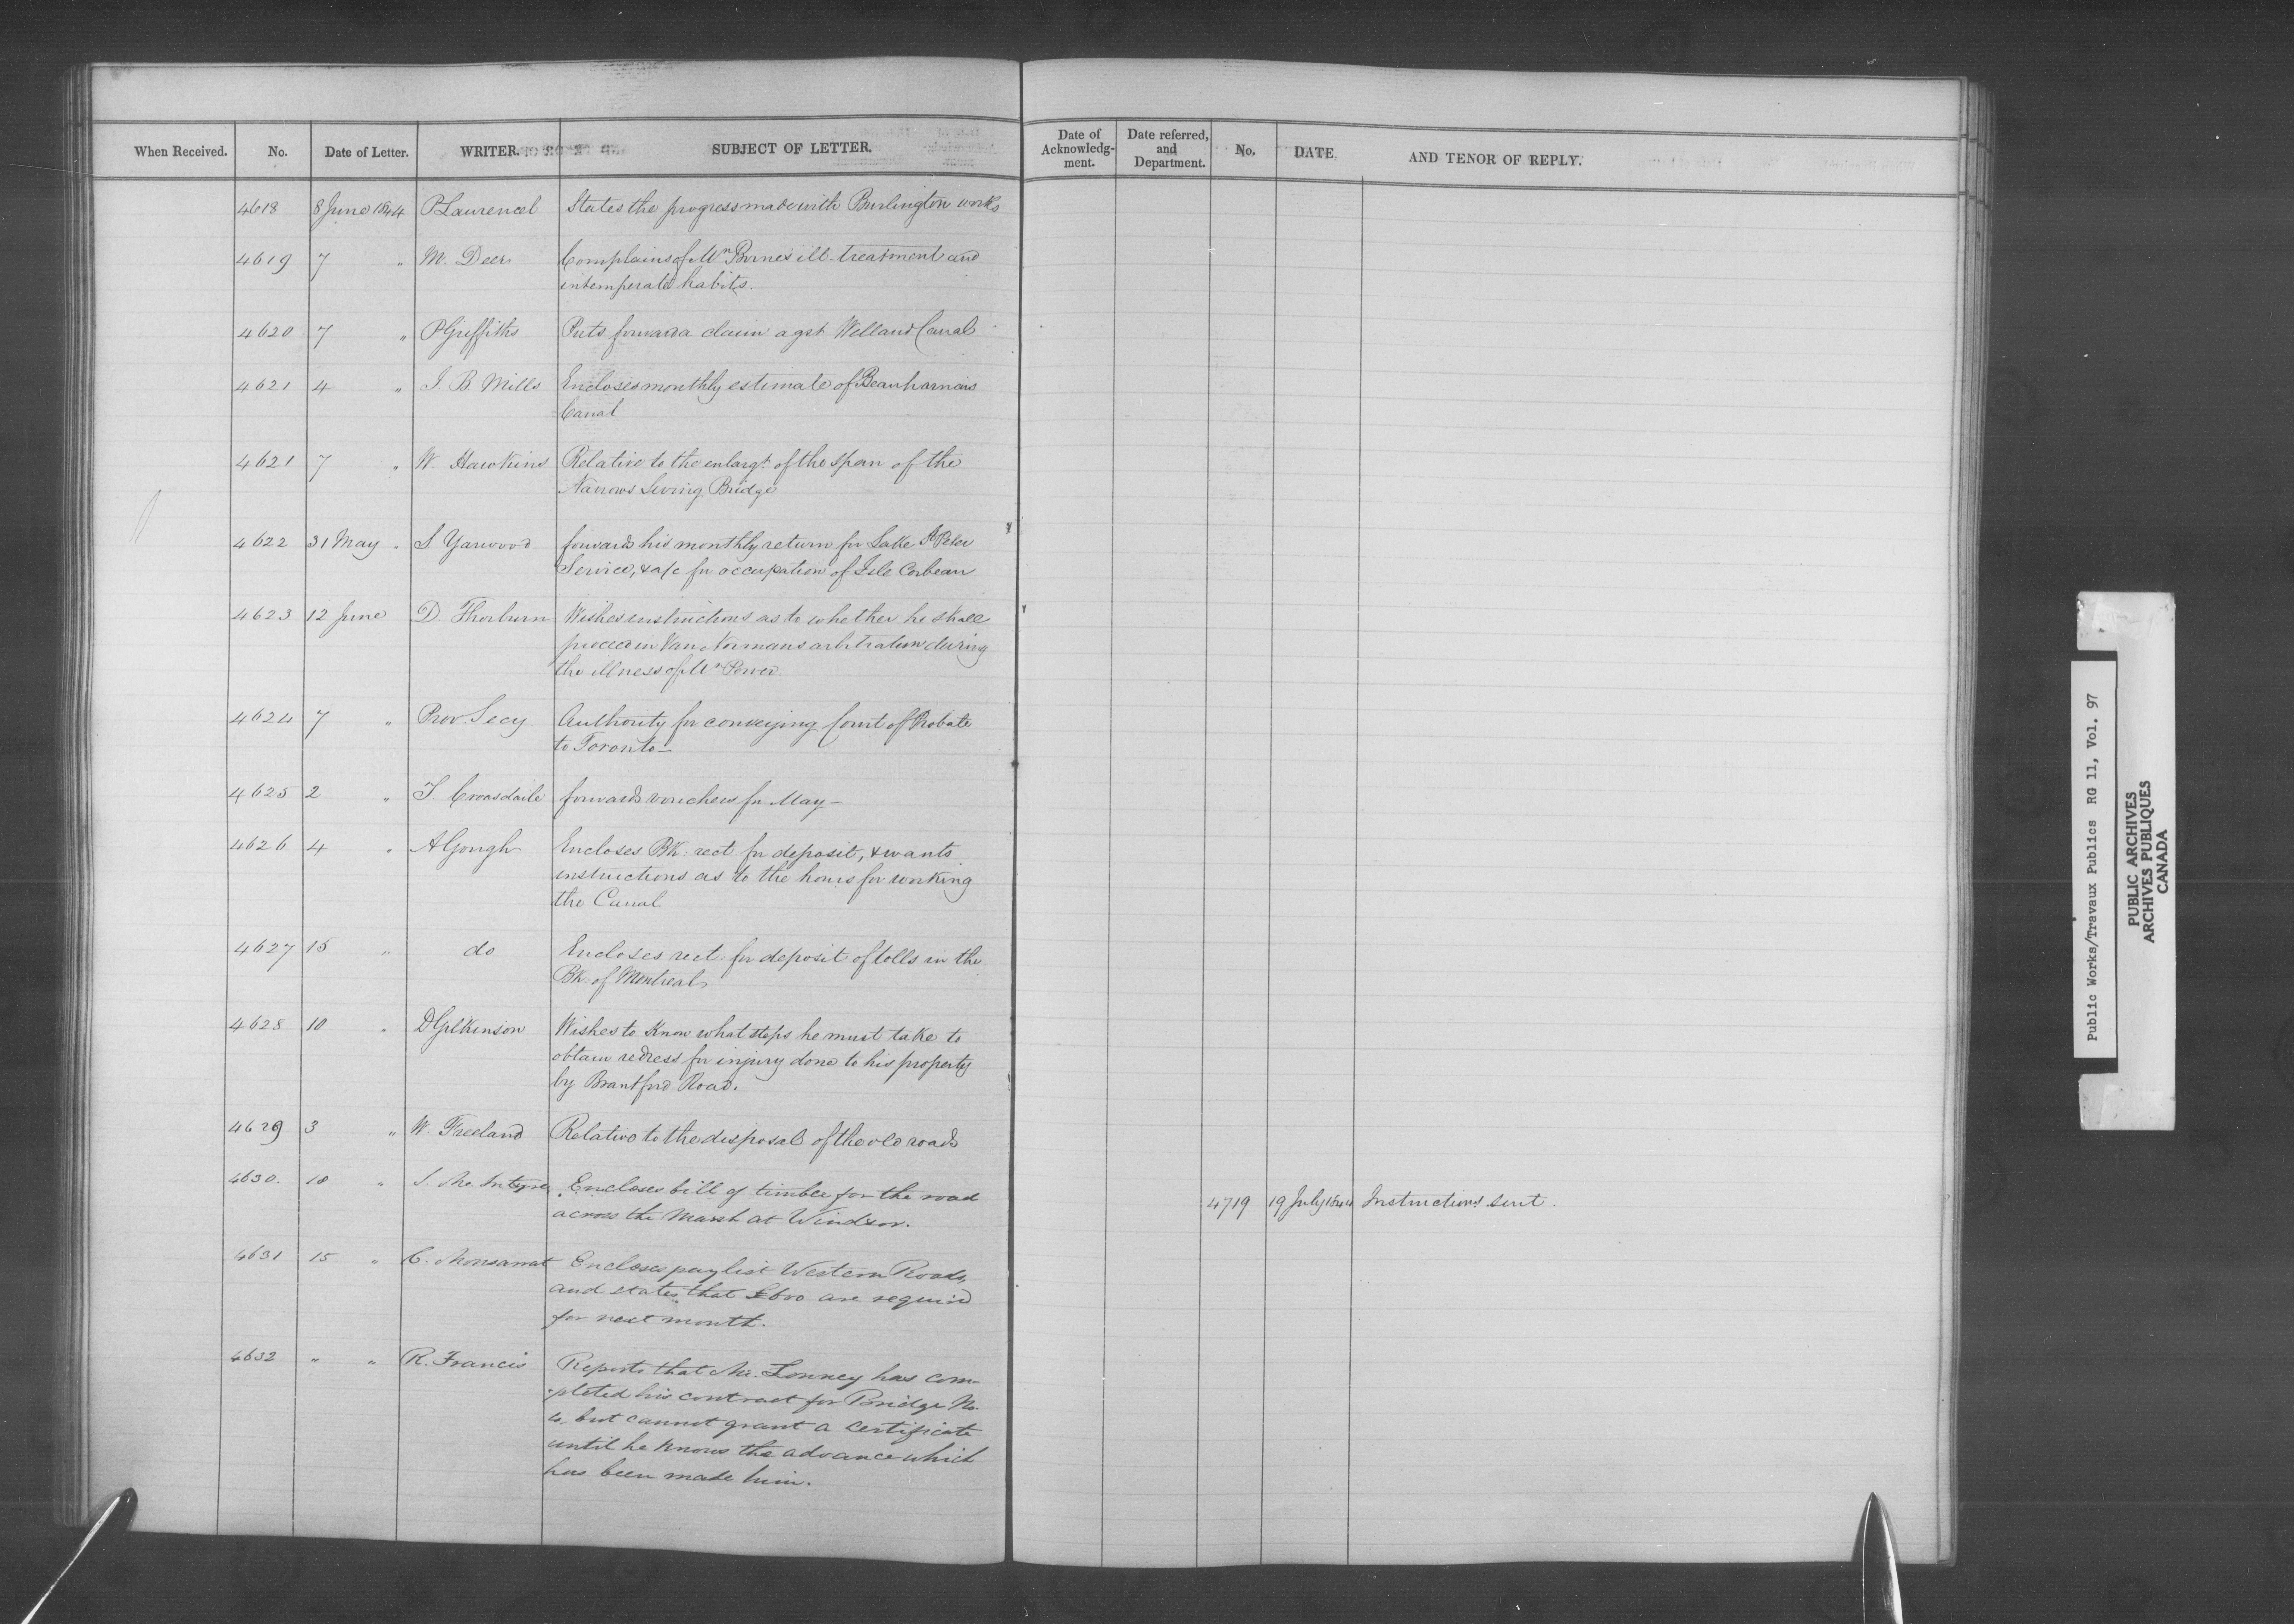 When Received. No. Date of Letter. WRITER. SUBJECT OF LETTER.
Date of Acknowledg-ment. Date referred, and Department. No. DATE. AND TENOR OF REPLY.
4618 8 June 1844 P Lawrence States the progress made with Burlington works
4619 7 " M. Deer Complains of Mr Birnes ill-treatment and
intemperate habits.
4620 7 " P Griffiths Puts forward a claim agst Welland Canal
4621 4 " J. B Mills Encloses monthly estimate of Beauharnois
Canal
4621 7 " W. Hawkins Relative to the enlargt. of the span of the
Narrows Swing Bridge
4622 31 May " S Yarwood forwards his monthly return for Lake St Peter
Service, & a/c for occupation of Isle Corbeau
4623 12 June D. Thorburn Wishes instructions as to whether he shall
proceed in Van Normans arbitration during
the illness of Mr Power.
4624 7 " Prov. Secy. Authority for conveying Court of Probate
to Toronto—
4625 2 " T. Croasdaile forwards vouchers for May—
4626 4 " A Gough Encloses Bk. rect. for deposit, & wants
instructions as to the hours for working
the Canal
4627 15 " do Encloses rect. for deposit of tolls in the
Bk. of Montreal,
4628 10 " D Gilkinson Wishes to know what steps he must take to
obtain redress for injury done to his property
by Brantford Road.
4629 3 " W. Freeland Relative to the disposal of the old roads
4630. 10 " J. McIntyre Encloses bill of timber for the road
across the Marsh at Windsor.
4719 19 July 1844 Instructions sent.
4631 15 " C. Monsarrat Encloses paylist Western Roads,
and states that £600 are required
for next month.
4632 " " R. Francis Reports that Mr. Lonney has com-
pleted his contract for Bridge No.
4, but cannot grant a certificate
until he knows the advance which
has been made him.
Public Works/Travaux Publics RG 11, Vol. 97
PUBLIC ARCHIVES
ARCHIVES PUBLIQUES
CANADA